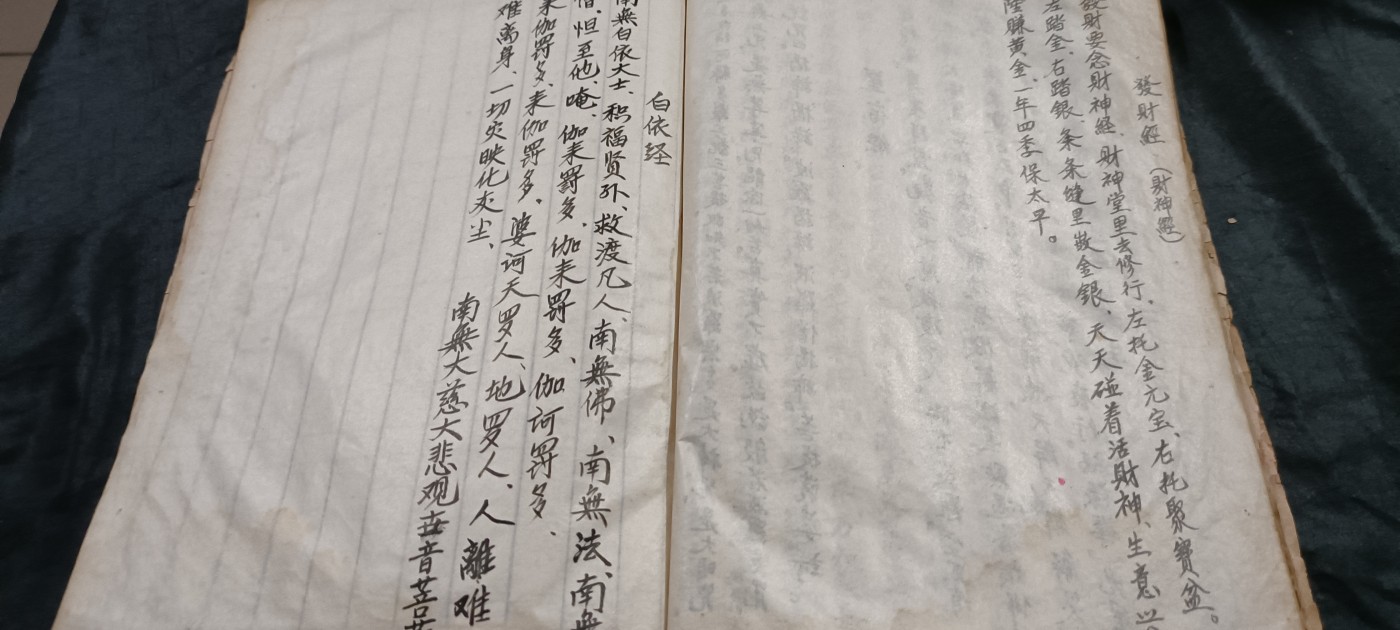 發財經（財神經）
發財要念財神經、财神堂里去修行、左托金元宝、右托聚寶盆。
左踏金、右踏銀、条条缝里嵌金銀、天天碰着活财神、生意
陸賺黄金、一年四季保太平。
白依经
南無白依大士、积福贤孙、救渡凡人、南無佛、南無法、南無
怛至他、唵、伽耒罸多、伽耒罸多、伽诃罸多、
耒伽罸多、耒伽罸多。婆诃天罗人、地罗人、人離难
难离身、一切灾映化灰尘、
南無大慈大悲观世音菩